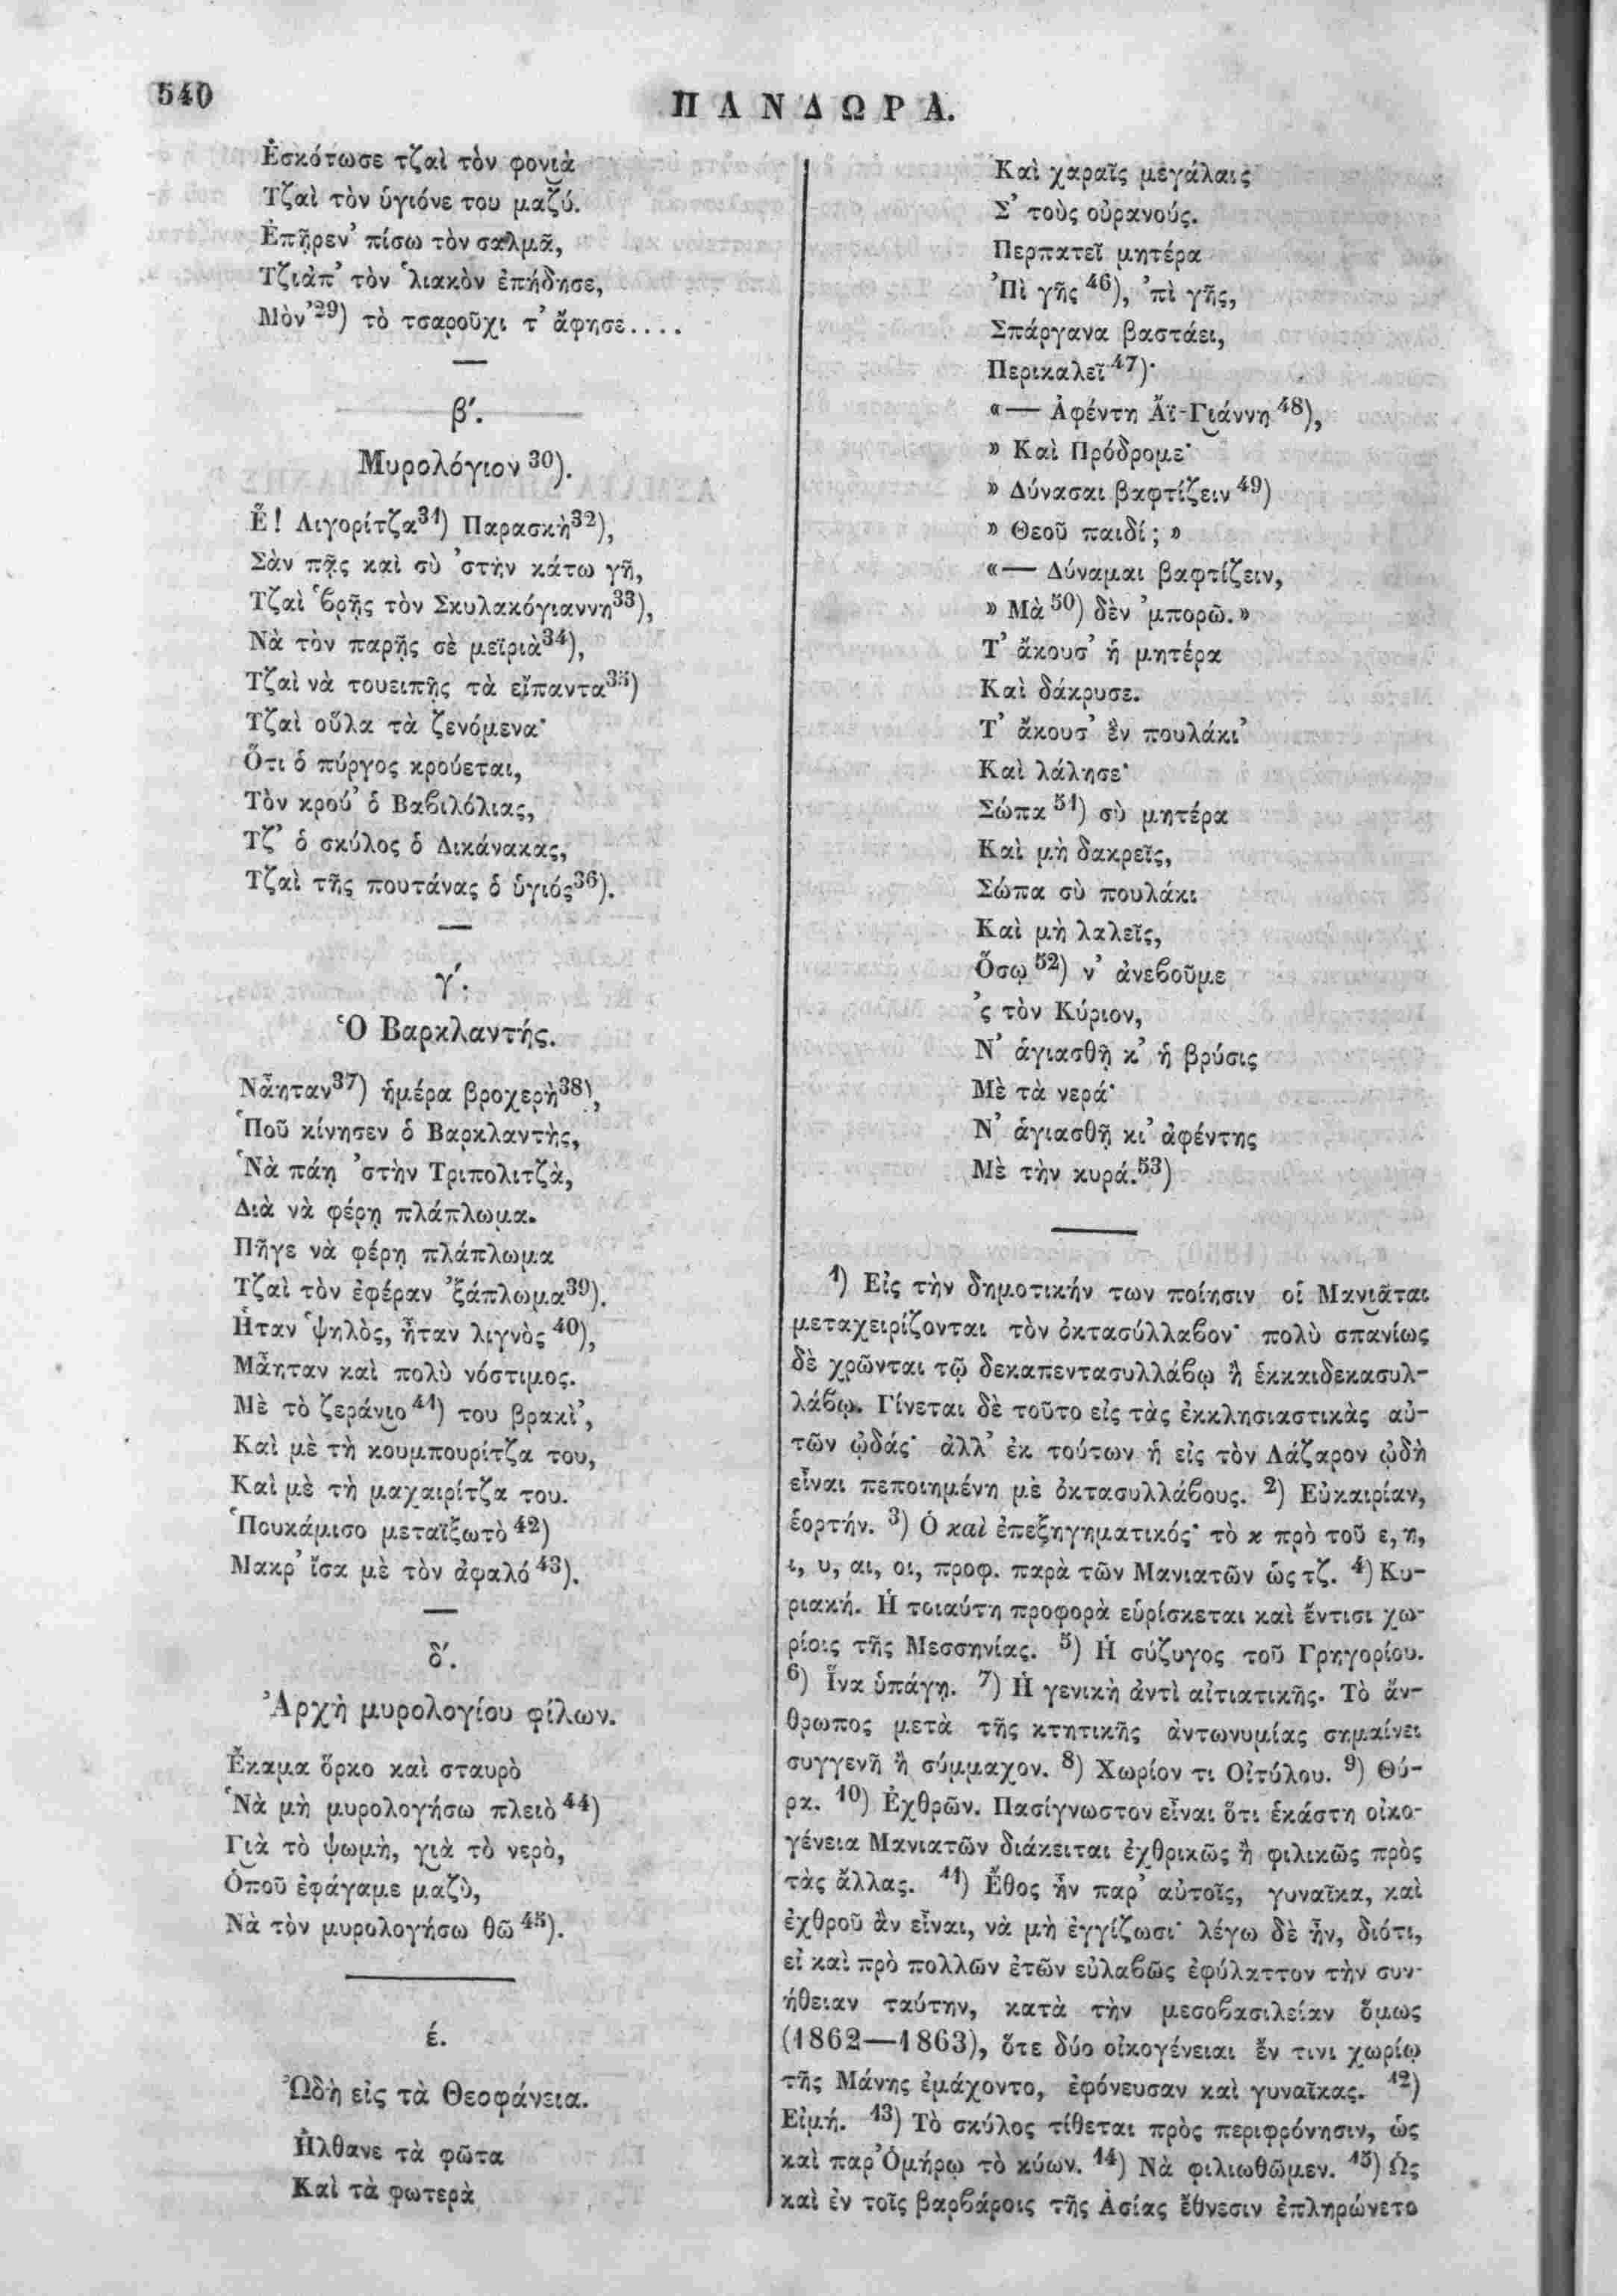 540
ΠΑΝΔΩΡΑ.
Ἐσκότωσε τζαὶ τὸν φονιὰ
Τζαὶ τὸν ὑγιόνε του μαζύ.
Ἐπῆρεν' πίσω τὸν σαλμᾶ,
Τζιἀπ' τὸν 'λιακὸν ἐπήδησε,
Μὸν'29) τὸ τσαροῦχι τ' ἄφησε....
β'.
Μυρολόγιον 30).
Ἔ! Λιγορίτζα31) Παρασκὴ32),
Σὰν πᾷς καὶ σὺ 'στὴν κάτω γῆ,
Τζαὶ 'βρῇς τὸν Σκυλακόγιαννη33),
Νὰ τὸν παρῇς σὲ μεϊριὰ34),
Τζαὶ νὰ τουειπῇς τὰ εἴπαντα35)
Τζαὶ οὗλα τὰ ζενόμενα·
Ὅτι ὁ πύργος κρούεται,
Τὸν κρού' ὁ Βαβιλόλιας,
Τζ' ὁ σκύλος ὁ Δικάνακας,
Τζαὶ τῆς πουτάνας ὁ ὑγιός36).
γ'.
Ὁ Βαρκλαντής.
Νἆηταν37) ἡμέρα βροχερὴ38),
Ποῦ κίνησεν ὁ Βαρκλαντὴς,
Νὰ πάῃ 'στὴν Τριπολιτζὰ,
Διὰ νὰ φέρῃ πλάπλωμα.
Πῆγε νὰ φέρῃ πλάπλωμα
Τζαὶ τὸν ἐφέραν 'ξάπλωμα39).
Ἦταν 'ψηλὸς, ἦταν λιγνὸς 40),
Μἆηταν καὶ πολὺ νόστιμος.
Μὲ τὸ ζεράνιο41) του βρακὶ',
Καὶ μὲ τὴ κουμπουρίτζα του,
Καὶ μὲ τὴ μαχαιρίτζα του.
Πουκάμισο μεταϊξωτὸ 42)
Μακρ' ἴσα μὲ τὸν ἀφαλό 43).
δ'.
Ἀρχὴ μυρολογίου φίλων.
Ἔκαμα ὅρκο καὶ σταυρὸ
Νὰ μὴ μυρολογήσω πλειὸ 44)
Γιὰ τὸ ψωμὴ, γιὰ τὸ νερὸ,
Ὁποῦ ἐφάγαμε μαζὺ,
Νὰ τὸν μυρολογήσω θῶ 45).
έ.
Ὠδὴ εἰς τὰ Θεοφάνεια.
Ἤλθανε τὰ φῶτα
Καὶ τὰ φωτερὰ
Καὶ χαραῖς μεγάλαις
Σ' τοὺς οὐρανούς.
Περπατεῖ μητέρα
'Πὶ γῆς 46), 'πὶ γῆς,
Σπάργανα βαστάει,
Περικαλεῖ 47)·
«— Ἀφέντη Ἄϊ-Γιάννη 48),
» Καὶ Πρόδρομε·
» Δύνασαι βαφτίζειν 49)
» Θεοῦ παιδί; »
«— Δύναμαι βαφτίζειν,
» Μὰ 50) δὲν 'μπορῶ.»
Τ' ἄκουσ' ἡ μητέρα
Καὶ δάκρυσε.
Τ' ἄκουσ' ἓν πουλάκι'
Καὶ λάλησε·
Σώπα 51) σὺ μητέρα
Καὶ μὴ δακρεῖς,
Σώπα σὺ πουλάκι
Καὶ μὴ λαλεῖς,
Ὅσῳ 52) ν' ἀνεβοῦμε
'ς τὸν Κύριον,
Ν' ἁγιασθῇ κ' ἡ βρύσις
Μὲ τὰ νερά·
Ν' ἁγιασθῇ κι' ἀφέντης
Μὲ τὴν κυρά.53)
1) Εἰς τὴν δημοτικήν των ποίησιν οἱ Μανιᾶται
μεταχειρίζονται τὸν ὀκτασύλλαβον· πολὺ σπανίως
δὲ χρῶνται τῷ δεκαπεντασυλλάβῳ ἢ ἑκκαιδεκασυλ-
λάβῳ. Γίνεται δὲ τοῦτο εἰς τὰς ἐκκλησιαστικὰς αὐ-
τῶν ᾠδάς· ἀλλ' ἐκ τούτων ἡ εἰς τὸν Λάζαρον ᾠδὴ
εἶναι πεποιημένη μὲ ὀκτασυλλάβους. 2) Εὐκαιρίαν,
ἑορτήν. 3) Ὁ καὶ ἐπεξηγηματικός· τὸ κ πρὸ τοῦ ε, η,
ι, υ, αι, οι, προφ. παρὰ τῶν Μανιατῶν ὡς τζ. 4) Κυ-
ριακή. Ἡ τοιαύτη προφορὰ εὑρίσκεται καὶ ἔντισι χω-
ρίοις τῆς Μεσσηνίας. 5) Ἡ σύζυγος τοῦ Γρηγορίου.
6) Ἵνα ὑπάγῃ. 7) Ἡ γενικὴ ἀντὶ αἰτιατικῆς. Τὸ ἄν-
θρωπος μετὰ τῆς κτητικῆς ἀντωνυμίας σημαίνει
συγγενῆ ἢ σύμμαχον. 8) Χωρίον τι Οἰτύλου. 9) Θύ-
ρα. 10) Ἐχθρῶν. Πασίγνωστον εἶναι ὅτι ἑκάστη οἰκο-
γένεια Μανιατῶν διάκειται ἐχθρικῶς ἢ φιλικῶς πρὸς
τὰς ἄλλας. 11) Ἔθος ἦν παρ' αὐτοῖς, γυναῖκα, καὶ
ἐχθροῦ ἂν εἶναι, νὰ μὴ ἐγγίζωσι· λέγω δὲ ἦν, διότι,
εἰ καὶ πρὸ πολλῶν ἐτῶν εὐλαβῶς ἐφύλαττον τὴν συν-
ήθειαν ταύτην, κατὰ τὴν μεσοβασιλείαν ὅμως
(1862—1863), ὅτε δύο οἰκογένειαι ἔν τινι χωρίῳ
τῆς Μάνης ἐμάχοντο, ἐφόνευσαν καὶ γυναῖκας. 12)
Εἰμή. 13) Τὸ σκύλος τίθεται πρὸς περιφρόνησιν, ὡς
καὶ παρ' Ὁμήρῳ τὸ κύων. 14) Νὰ φιλιωθῶμεν. 15) Ὡς
καὶ ἐν τοῖς βαρβάροις τῆς Ἀσίας ἔθνεσιν ἐπληρώνετο